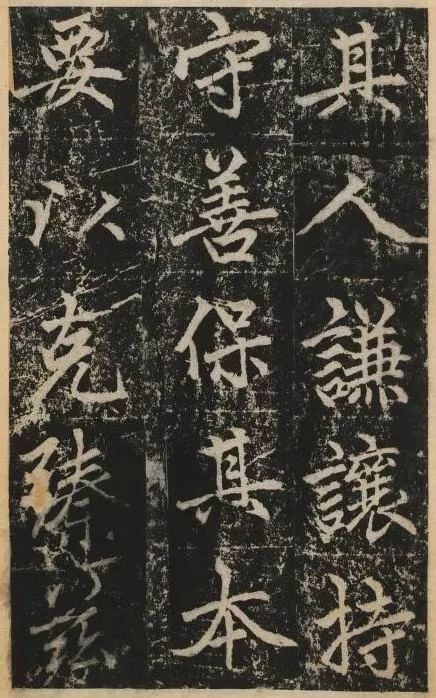 其人謙讓持
守善保其本
要以克臻